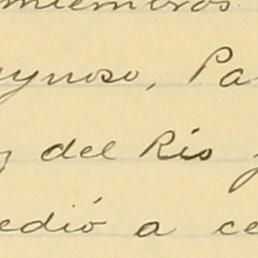 miembros
ynoso, Pa
z del Río y
edió a ce